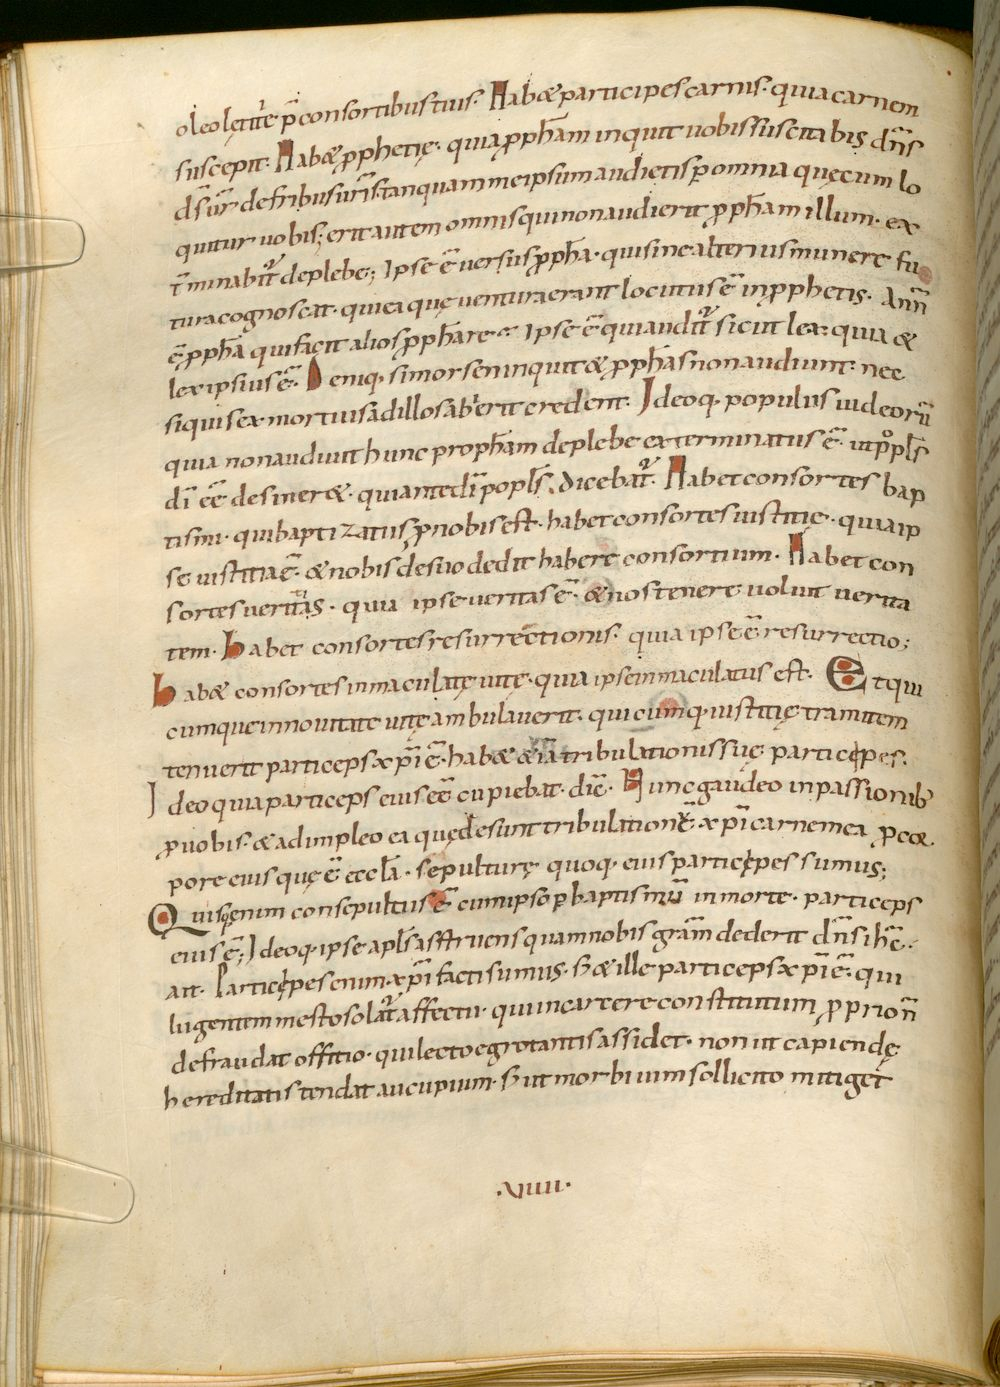 oleo lętitię p̄ consortibus tuis. Habæ participes carnis. quia carnem
suscepit. Habæ p̱phetię. quia p̱ph̄am inquit uobis suscitabis dn̄s
d̄s ur̄ de fribus ur̄is. tanquam me ipsum audietis p̱ omnia quęcum lo
quitur uobis; erit autem omnis qui non audierit p̱ph̄am illum. ex
t̄minabit̃ de plebe; Ipse ē uersus p̱ph̄a. qui sine alterius munere fu
tura cognoscat. qui ea quę uentura erant locutus ē in p̱phetis. Ann̄
ē p̱ph̄a qui facit alios p̱ph̄are. Ipse ē qui audit̃ sicut lex. quia &
lex ipsius ē. Deniq. si morsen inquit & p̱ph̄as non audiunt. nec
si quis ex mortuis ad illos abierit credent. Ideoq. populus iudeorū
quia non audiuit hunc proph̄am de plebe exterminatus ē. ut pop̄ls
dī eē desiner&. qui ante dī popl̄s. dicebat̃. Habet consortes bap
tismi. qui baptizatus p̱ nobis est. habet consortes iustitię. quia ip
se iustitia ē. & nobis de suo dedit habere consortium. Habet con
sortes ueritatis. quia ipse ueritas ē. & nos tenere uoluit uerita
tem. habet consortes resurrectionis. quia ipse ē resurrectio;
habæ consortes inmaculatę uitę. quia ipse inmaculatus est. Et qui
cumque in nouitate uitę ambulauerit. quicumq. iustitię tramitem
tenuerit particeps xp̄i ē. habæ & iā tribulationis suę participes.
Ideo quia particeps eius eē cupiebat. dic̄. Nunc gaudeo in passionib;
p̱ uobis. & adimpleo ea quę desunt tribulationē xp̄i carne mea p̱ coe
pore eius quę ē eccl̄a. sepulturę quoq. eius participes sumus;
Quisq. enim consepultus ē cum ipso p̱ baptismū in morte. particeps
eius ē; Ideoq. ipse apl̄s astruens quam nobis grām dederit dn̄s ih̄c.
ait. Participes enim xp̄i facti sumus. s; & ille particeps xp̄i ē. qui
lugentem mesto solat̃ affectu. qui in carcere constitutum p̱prio n̄
defraudat offitio. qui lecto egrotantis assidet. non ut capiendę
hereditatis tendat aucupium. s; ut morbi uim sollicito mitiget
.VIIII.